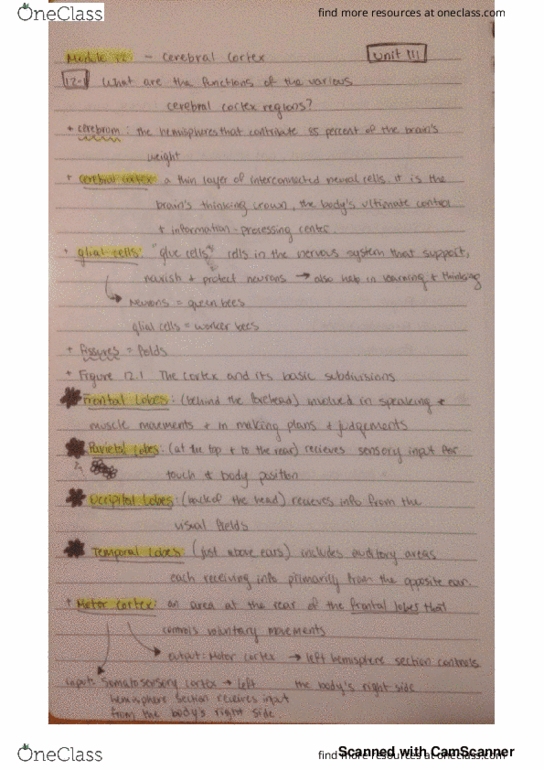 OneClass
find more resources at oneclass.com
Module 12 - Cerebral Cortex
Unit III
12-1 What are the functions of the various
cerebral cortex regions?
+ cerebrum: the hemispheres that contribute 85 percent of the brain's
weight
+ cerebral cortex: a thin layer of interconnected neural cells. it is the
brain's thinking crown, the body's ultimate control
+ information-processing center.
+ glial cells: "glue cells" cells in the nervous system that support,
nourish + protect neurons → also help in learning + thinking
Neurons = queen bees
glial cells = worker bees
+ fissures = folds
+ Figure 12.1 The cortex and its basic subdivisions
Frontal Lobes: (behind the forehead) involved in speaking +
muscle movements + in making plans + judgements
Parietal Lobes: (at the top + to the rear) recieves sensory input for
touch + body position
Occipital Lobes: (back of the head) recieves info from the
visual fields
Temporal Lobes (just above ears) includes auditory areas
each receiving info primarily from the opposite ear.
+ Motor cortex: an area at the rear of the frontal lobes that
controls voluntary movements
output: Motor cortex → left hemisphere section controls
the body's right side
input: Somatosensory cortex → left
hemisphere section receives input
from the body's right side.
Scanned with CamScanner
OneClass
find more resources at oneclass.com